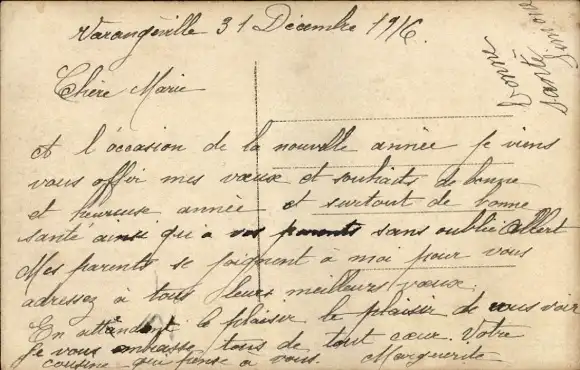 Varangéville 31 Décembre 1916.
Bonne
santé
Chère Marie
A l'occasion de la nouvelle année je viens
vous offir mes vœux et souhaits de bonne
et heureuse année et surtout de bonne
santé ainsi qu'a vos parents sans oublié Albert
Mes parents se joignent a moi pour vous
adressez à tous leurs meilleurs vœux.
En attendant le plaisir le plaisir de vous voir
Je vous embrasse tous de tout cœur. Votre
cousine qui pense a vous. Marguerite